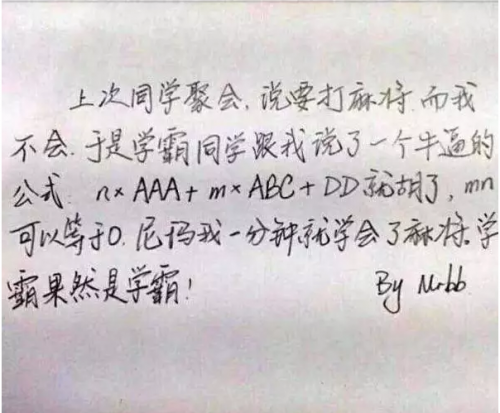 上次同学聚会,说要打麻将,而我
不会.于是学霸同学跟我说了一个牛逼的
公式. n×AAA+m×ABC+DD就胡了,mn
可以等于0.尼玛我一分钟就学会了麻将.学
霸果然是学霸!
By Mrbb